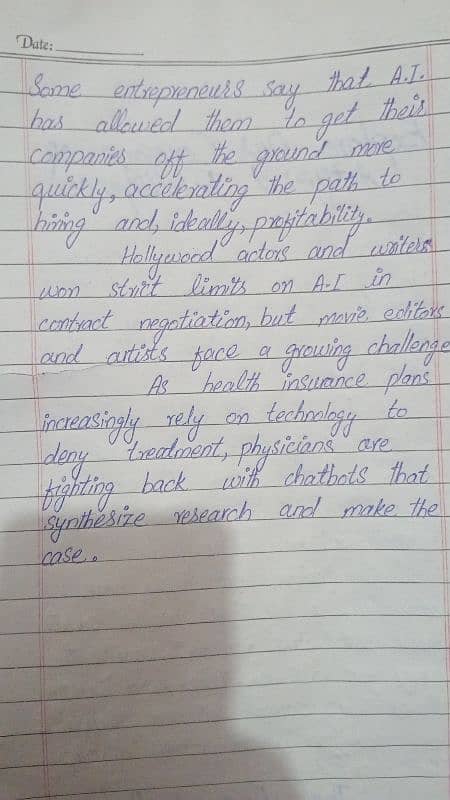 Date:
Some entrepreneurs say that A.I.
has allowed them to get their
companies off the ground more
quickly, accelerating the path to
hiring and, ideally, profitability.
Hollywood actors and writers
won strict limits on A-I in
contract negotiation, but movie editors
and artists face a growing challenge
As health insurance plans
increasingly rely on technology to
deny treatment, physicians are
fighting back with chatbots that
synthesize research and make the
case.